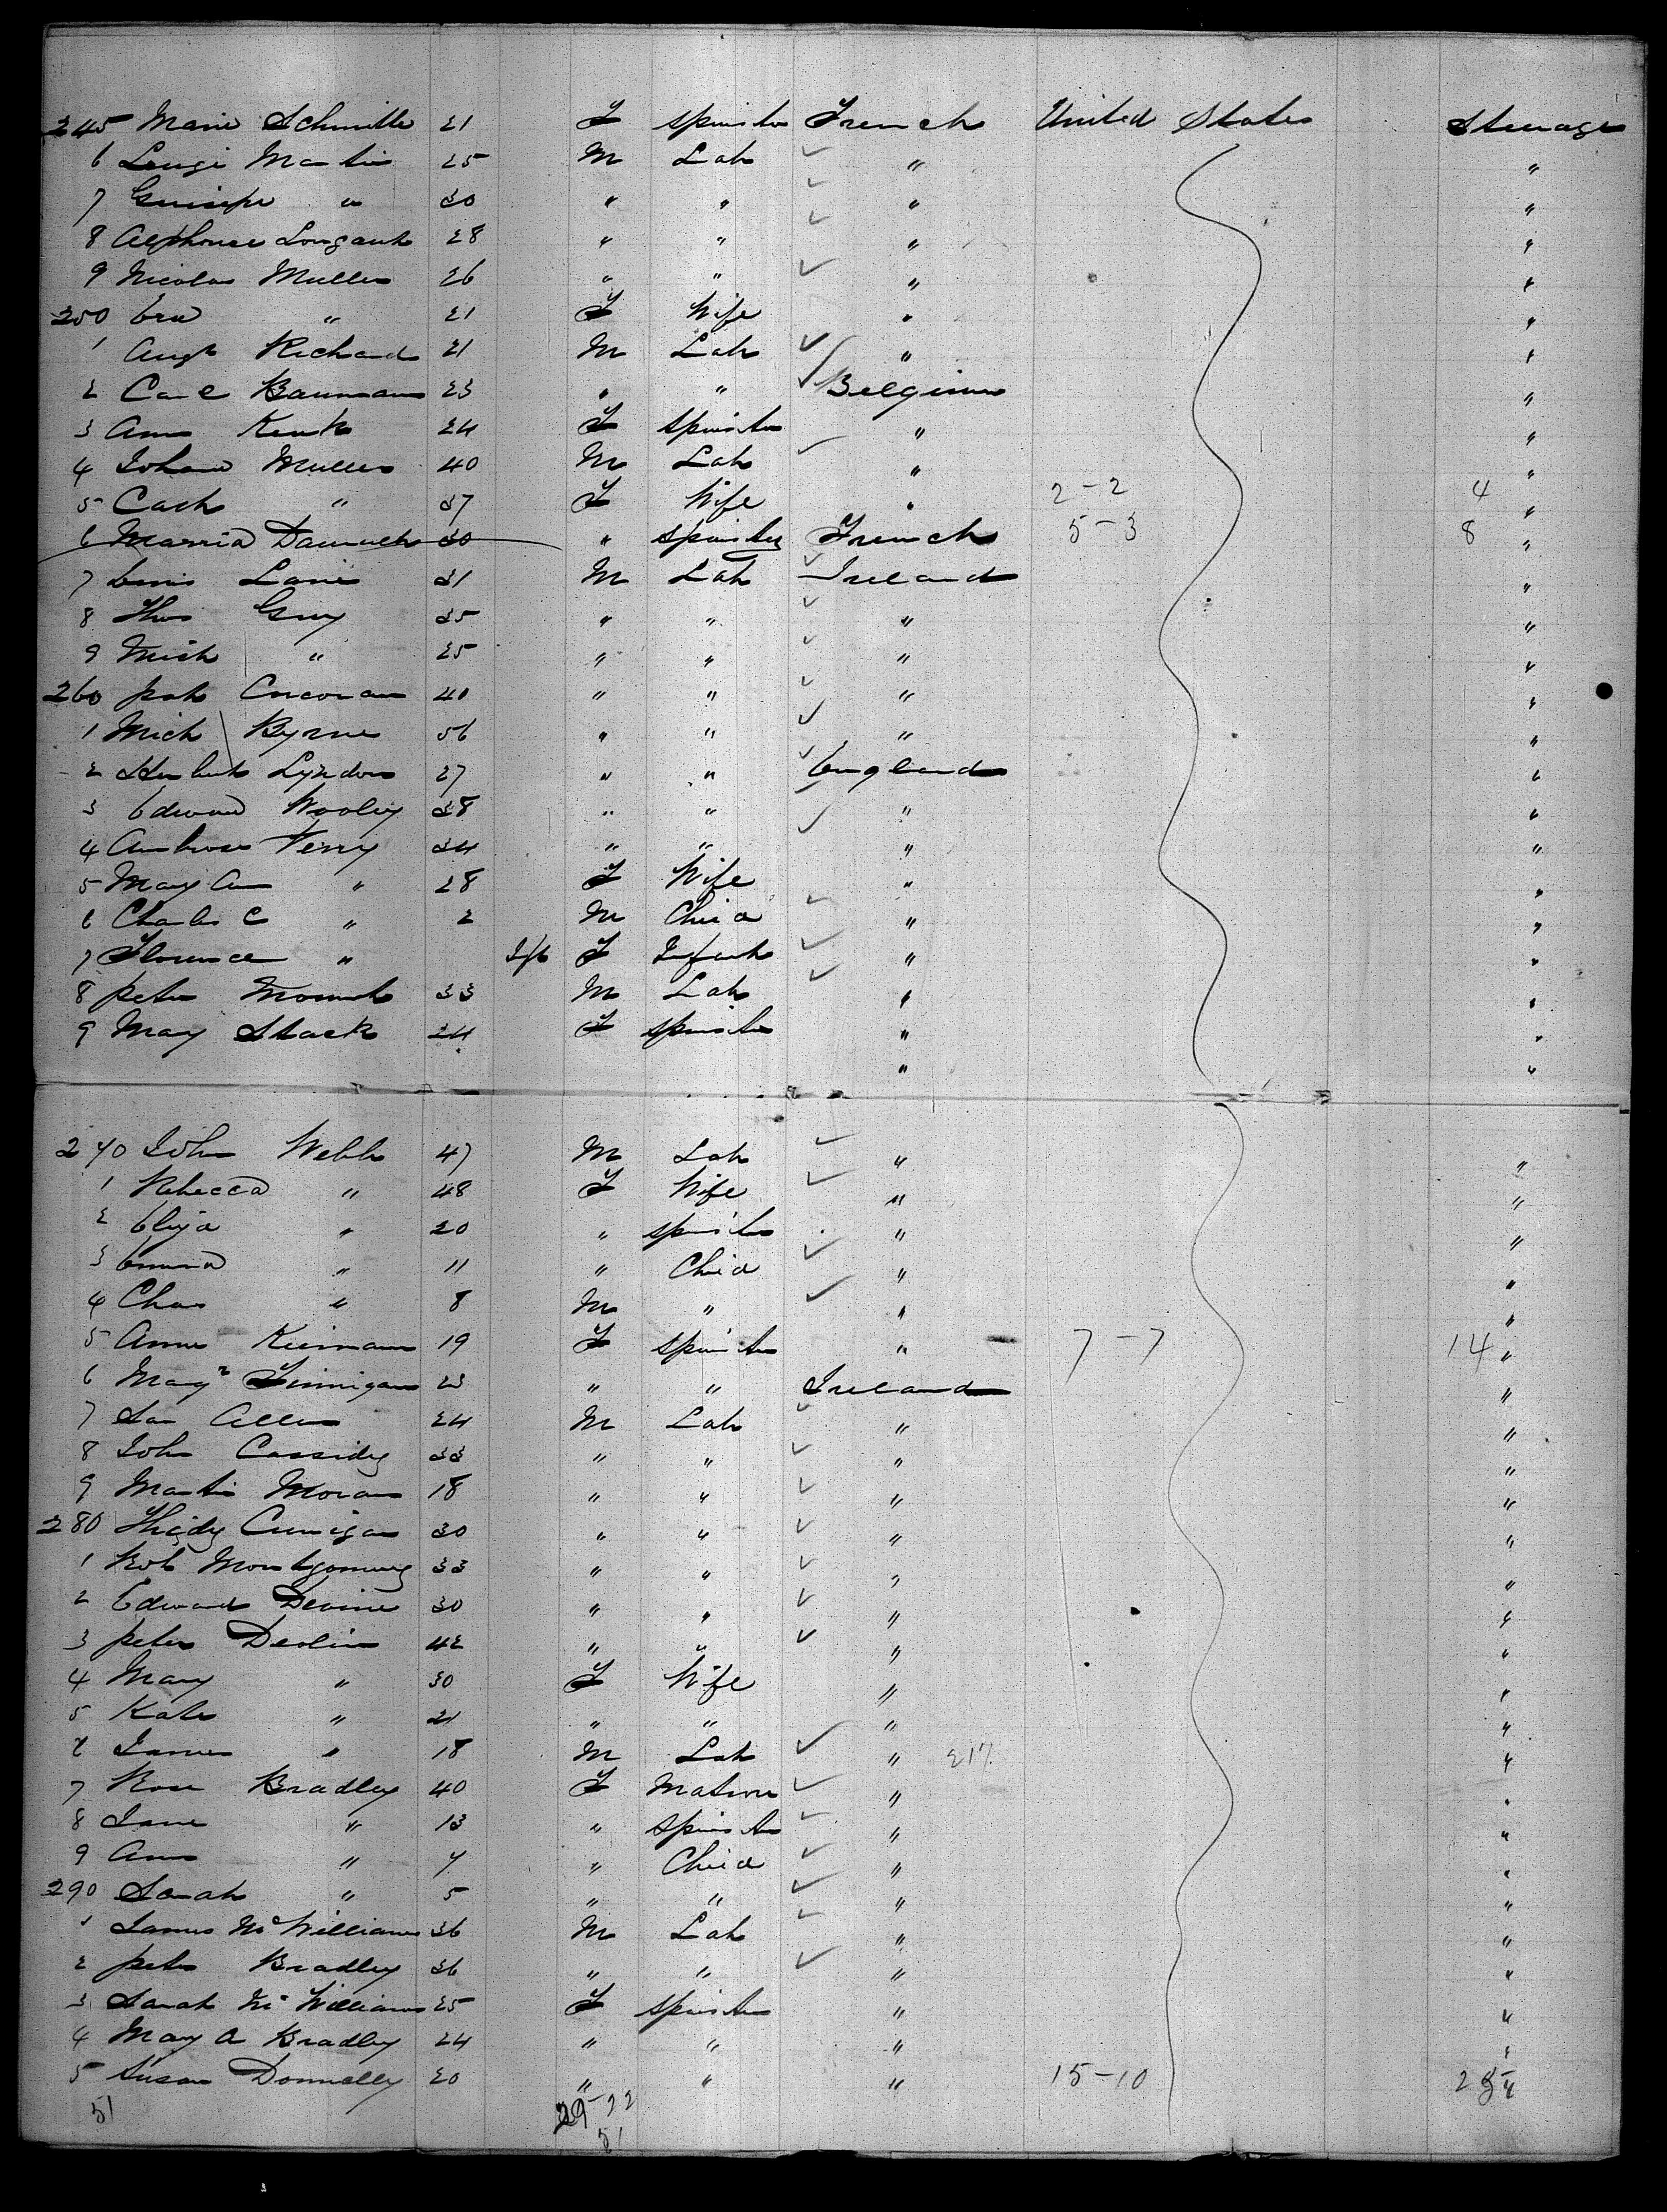 245 Marie Schmitte 21 F Spinster French United States Steerage
6 Luigi Martin 25 M Lab " "
7 Guisepe " 30 " " " "
8 Alphonse Longant 28 " " " "
9 Nicolas Muller 26 " " " "
250 Eva " 21 F Wife " "
1 Augt Richard 21 M Lab " "
2 Carl Bauman 23 " " Belgium "
3 Ann Kenk 24 F Spinster " "
4 Johann Muller 40 M Lab " "
5 Cath " 37 F Wife " 2-2 4 "
6 Marria 30 " Spinster French 5-3 8 "
7 31 M Lab Ireland "
8 Thos Guy 35 " " " "
9 Mich " 25 " " " "
260 Pat Corcoran 40 " " " "
1 Mich Byrne 56 " " " "
2 Herbert Lyndon 27 " " England "
3 Edward Wooley 38 " " " "
4 Ambrose Terry 34 " " " "
5 Mary Ann " 28 F Wife " "
6 Charles C " 2 M Child " "
7 Florence " F Infant " "
8 Peter 33 M Lab " "
9 Mary Stack 24 F Spinster " "
" "
270 John Webb 47 M Lab " "
1 Rebecca " 48 F Wife " "
2 Eliza " 20 " Spinster " "
3 Emma " 11 " Child " "
4 Chas " 8 M " " "
5 Anne Kiernan 19 F Spinster " 7-7 14 "
6 Magt Finnigan 23 " " Ireland "
7 Allen 24 M Lab " "
8 John Cassidy 33 " " " "
9 Martin Moran 18 " " " "
280 30 " " " "
1 Robt Montgomery 33 " " " "
2 Edward Devine 30 " " " "
3 Peter Devlin 42 " " " "
4 Mary " 30 F Wife " "
5 Kate " 21 " " " "
6 James " 18 M Lab " "
7 Rose Bradley 40 F Matron " "
8 Jane " 13 " Spinster " "
9 Ann " 7 " Child " "
290 Sarah " 5 " " " "
1 James McWilliams 36 M Lab " "
2 Peter Bradley 36 " " " "
3 Sarah McWilliams 25 F Spinster " "
4 Mary A Bradley 24 " " " "
5 Susan Donnelly 20 " " " 15-10 25 "
51 29-22
51